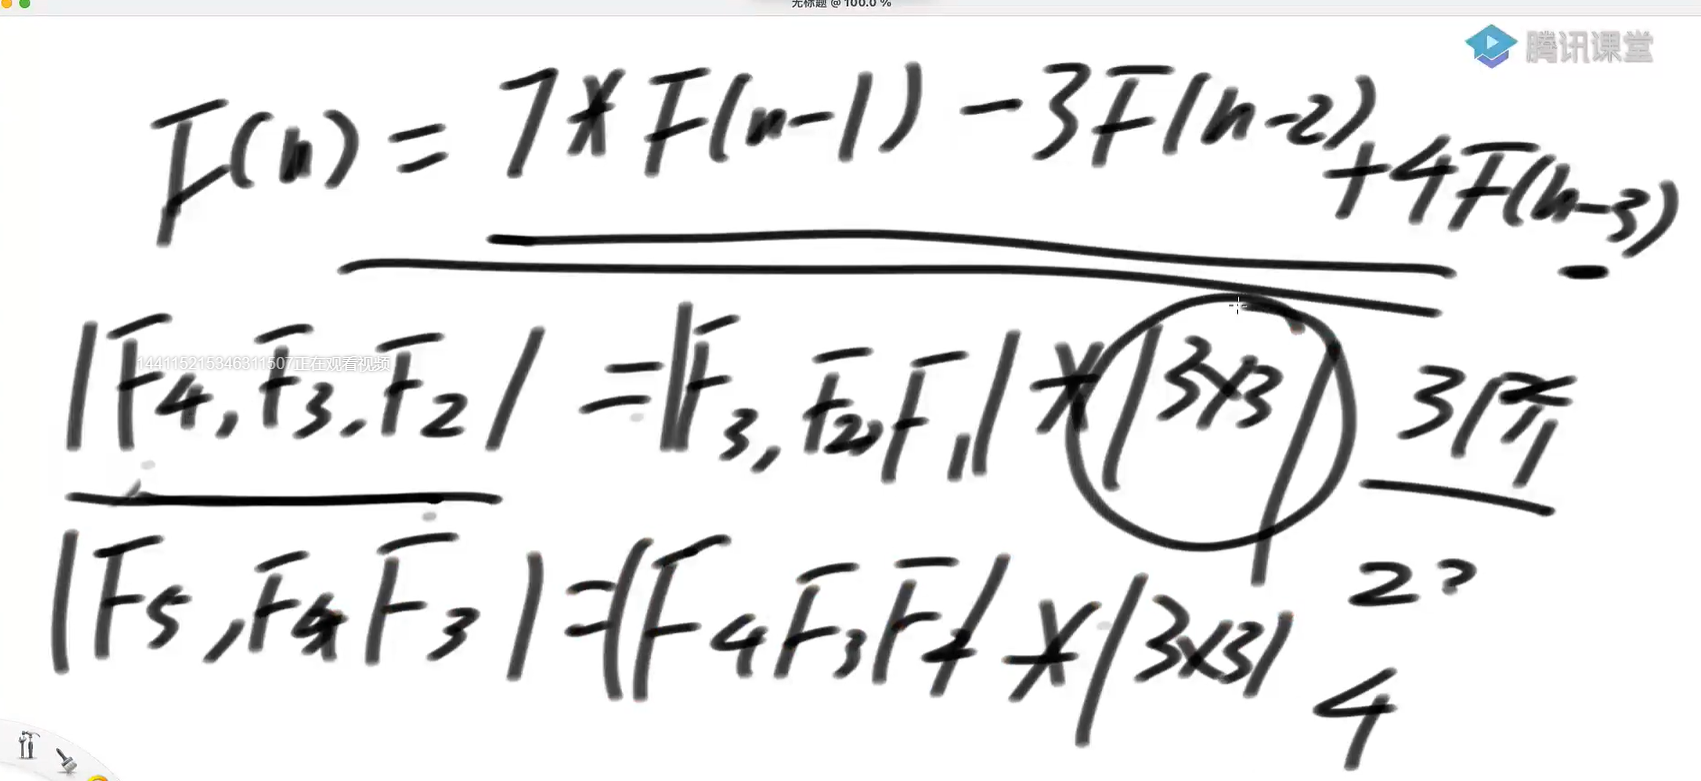 无标题 @ 100.0 %
腾讯课堂
F(n) = 7*F(n-1) - 3F(n-2)+4F(n-3)
|F4,F3,F2| = |F3,F2,F1| * |3×3| 3阶
144115215346311507正在观看视频
|F5,F4F3| = |F4F3F2| * |3×3| 2?
4